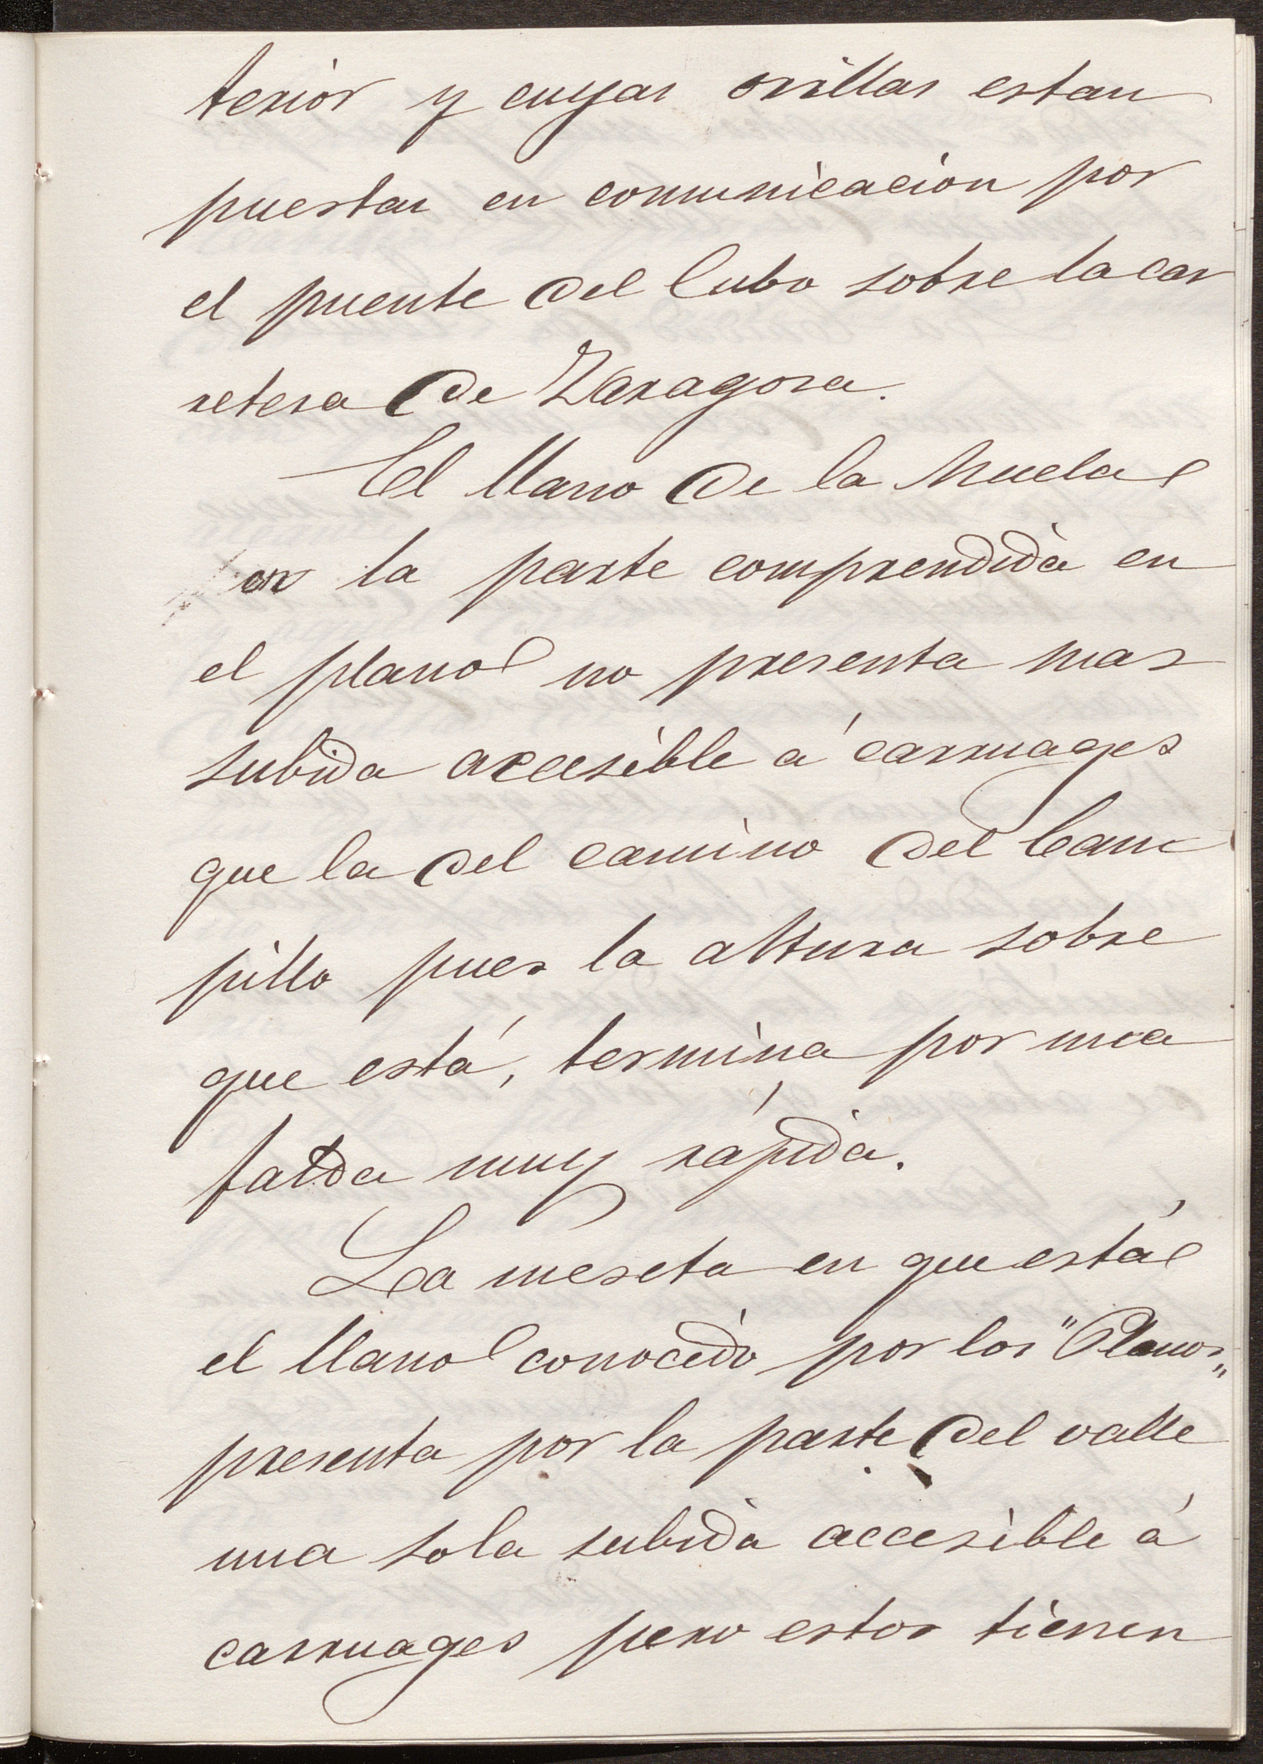 terior y cuyas orillas estan
puestas en comunicación por
el puente del Cubo sobre la car
retera de Zaragoza.
El llano de la Muela
en la parte comprendida en
el plano no presenta mas
subida accesible á carruages
que la del camino del Cam
pillo pues la altura sobre
que está, termina por una
falda muy rápida.
La meseta en que está
el llano conocido por los "Planos"
presenta por la parte del valle
una sola subida accesible á
carruages pero estos tienen